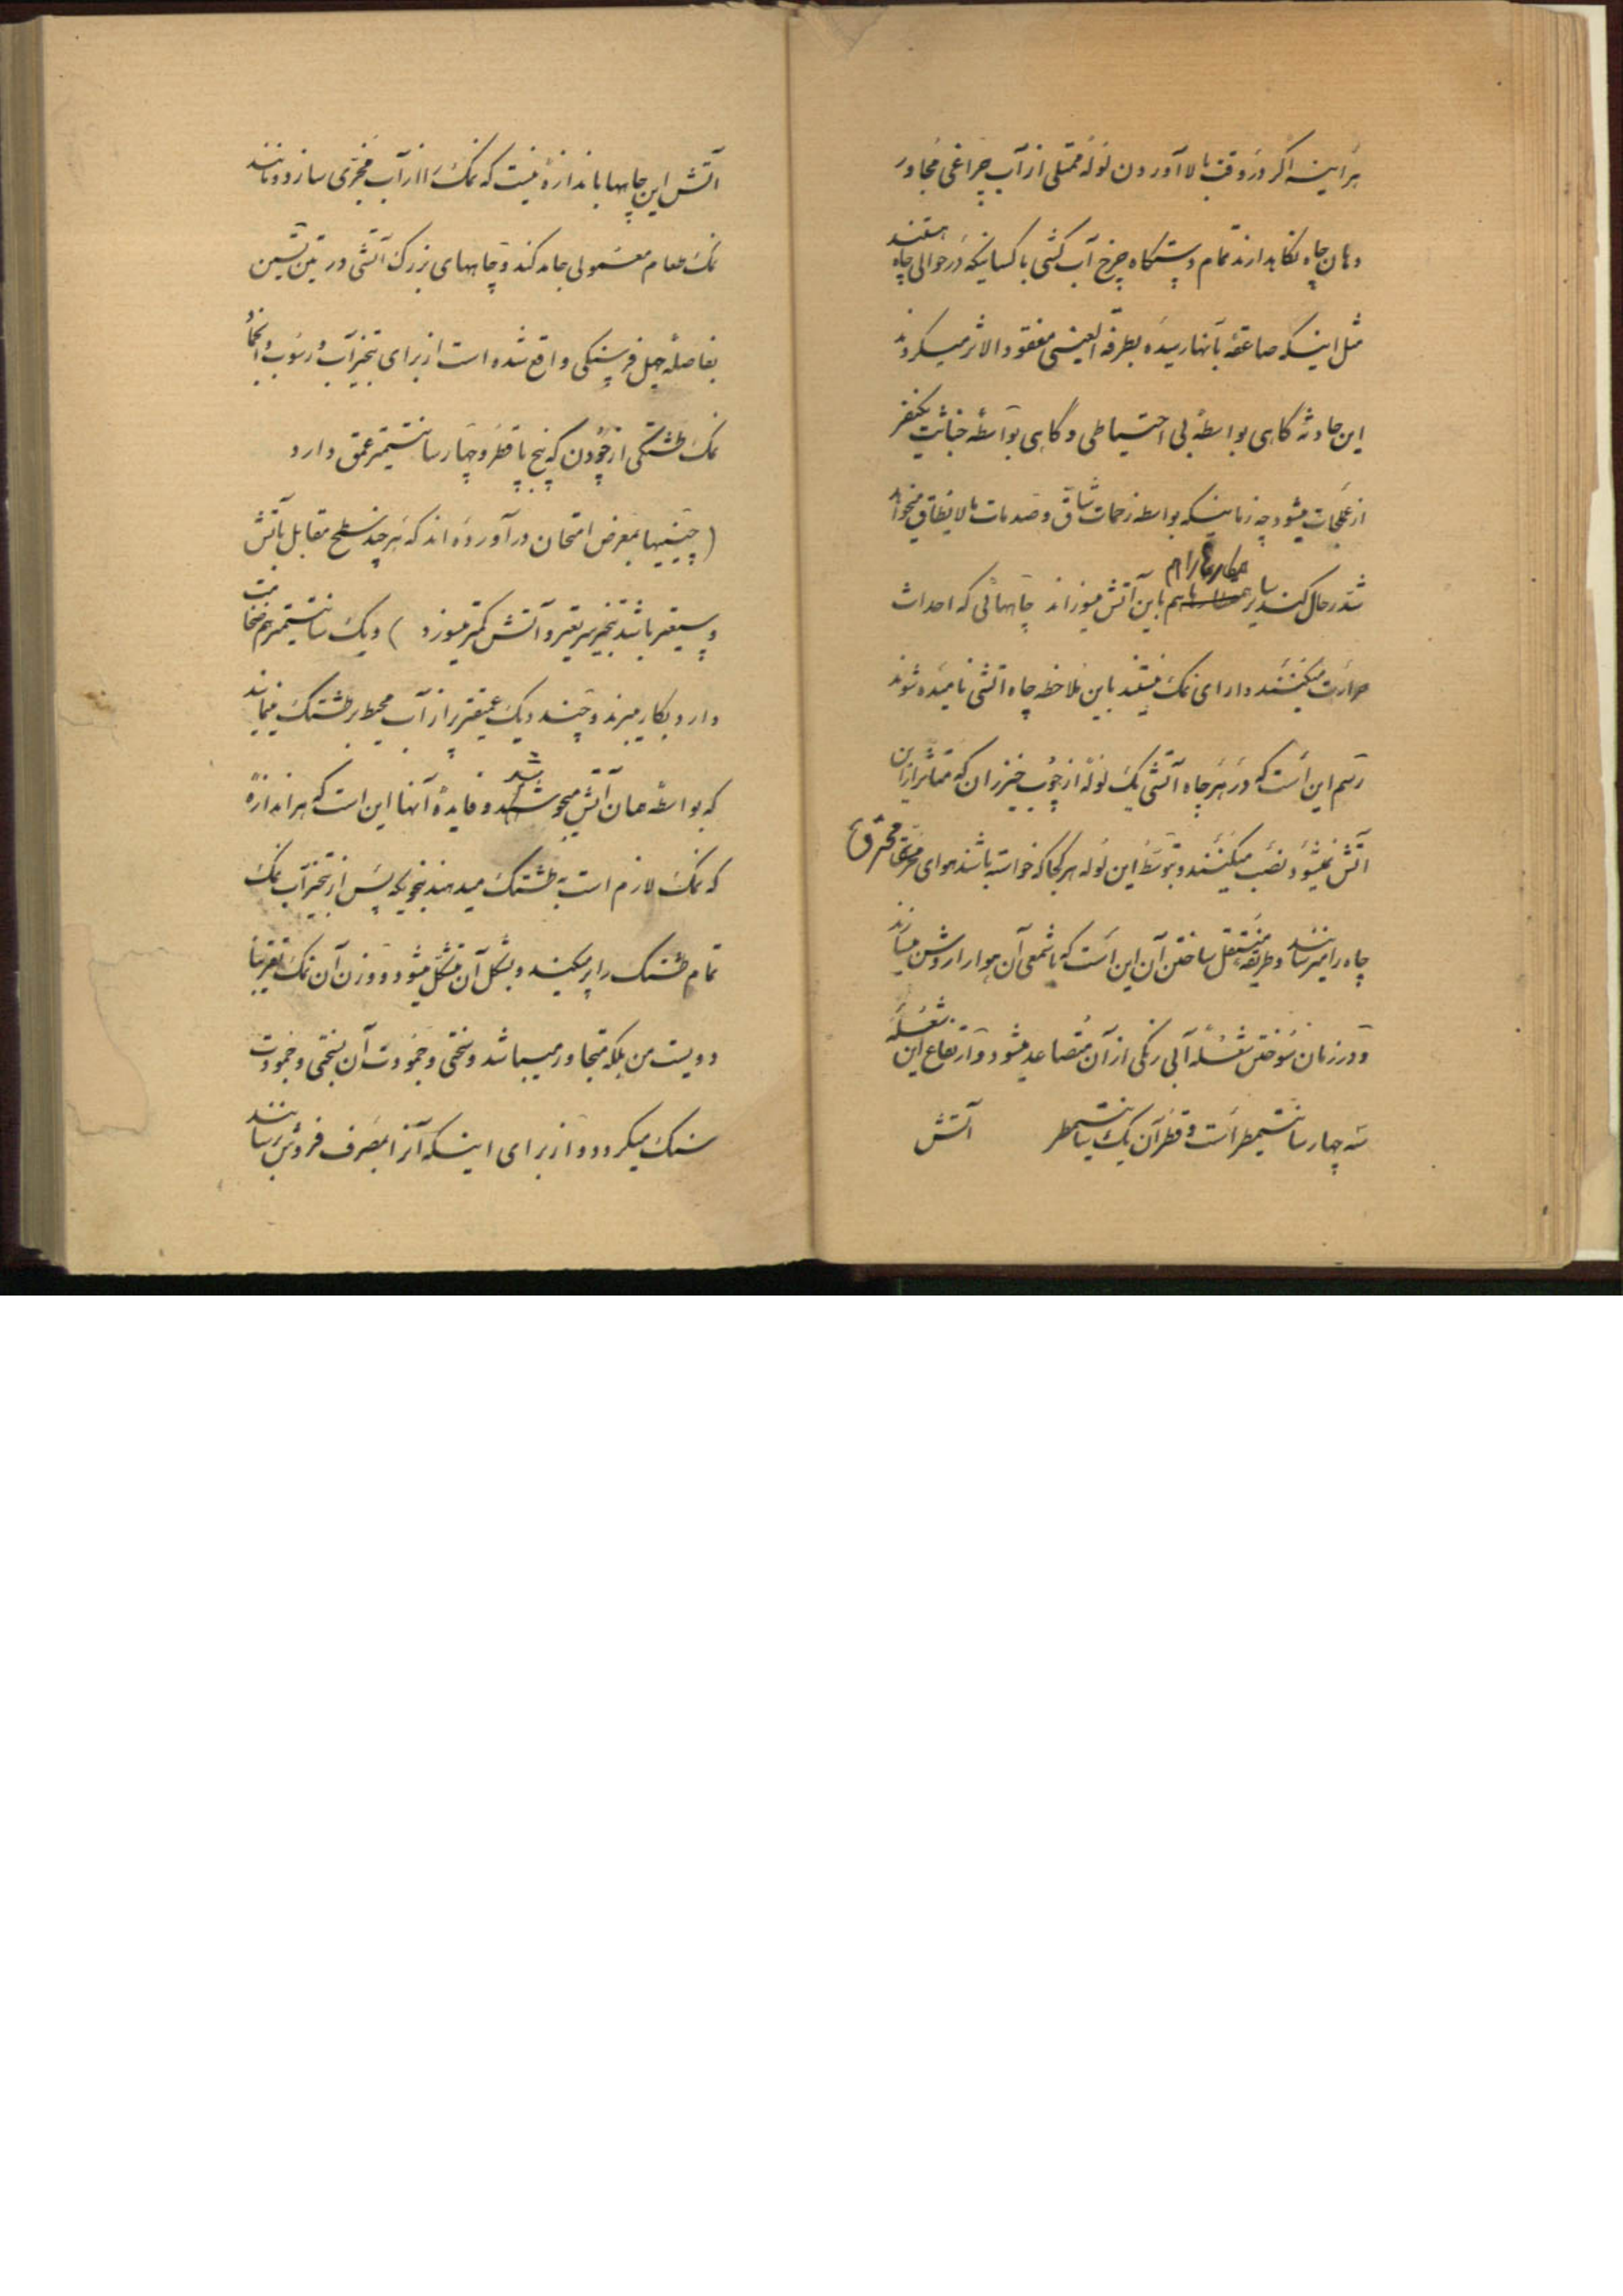 هر اینه اگر در وقت بالا آوردن لوله ممتلی از آب چراغی مجاور
دهان چاه نگاهدارند تمام دستگاه چرخ آب کشی با کسانیکه در حوالی چاه هستند
مثل اینکه صاعقه بآنها رسیده بطرفة العینی مفقود الاثر میکردند
این حادثه کاهی بواسطه بی احتیاطی و کاهی بواسطه خباثت یکنفر
از عملجات میشود چه زمانیکه بواسطه زحمات شاق و صدمات مالایطاق میخواهد
انتحار کند سایر همکارهارا هم باین آتش میسوزاند چاههائی که احداث
حرارت میکنند دارای نمک نیستند باین ملاحظه چاه آتشی نامیده شوند
رسم این است که در هر چاه آتشی یک لوله از چوب خیزران که متاثر از آن
آتش نمیشود نصب میکنند و بتوسط این لوله هر کجا که خواسته باشند هوای محترق
چاه را میرسانند و طریقه مشتعل ساختن آن این است که با شمعی آن هوا را روشن میسازند
و در زمان سوختن شعله آبی رنگی از آن متصاعد میشود و ارتفاع این شعله
سه چهار سانتیمطر است و قطر آن یک سانتیمطر آتش
آتش این چاهها باندازه نیست که نمک را از آب مجزی سازد و مانند
نمک طعام معمولی جامد کند و چاههای بزرک آتشی در تین تسین
بفاصله چهل فرسنکی واقع شده است از برای تبخیر آب و رسوب و انجماد
نمک طشتکی از چودن که پنج پا قطر و چهار سانتیمتر عمق دارد
(چینیها بمعرض امتحان در آورده اند که هر چند سطح مقابل بآتش
وسیعتر باشد تبخیر سریعتر و آتش کمتر میسوزد) و یک سانتیمتر هم ضخامت
دارد بکار میبرند و چند دیک عمیقتر پر از آب محیط بر طشتک مینمایند
که بواسطه همان آتش میجوشد و فایده آنها این است که هر اندازه
که نمک لازم است بطشتک میدهند بنحویکه پس از تبخیر آب نمک
تمام طشتک را پر میکند و بشکل آن متشکل میشود و وزن آن نمک تقریبا
دویست من بلکه متجاوز میباشد و سختی و جمودت آن بسختی و جمودت
سنک میکردد و از برای اینکه آنرا بمصرف فروش رسانند